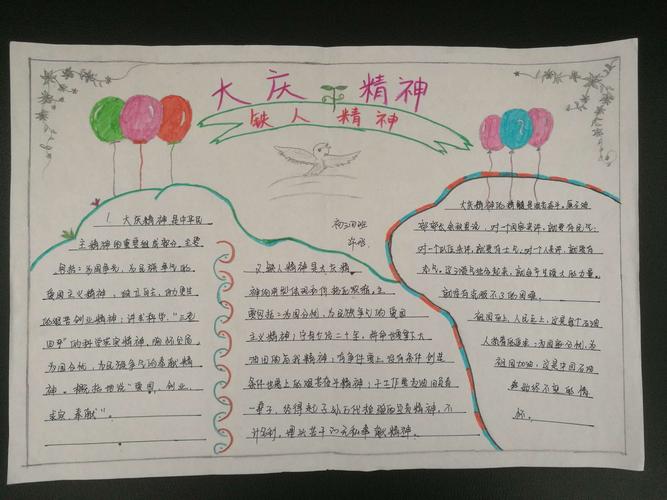 大庆精神
铁人精神
初三四班
1. 大庆精神是中华民
主精神的重要组成部分。主要
包括:为国争光、为民族争气的
爱国主义精神,独立自主、自力更生
的艰苦创业精神;讲求科学、“三老
四严”的科学求实精神,胸怀全局、
为国分忧、为民族争气的奉献精
神。概括地说“爱国、创业、
求实、奉献”。
2.铁人精神是大庆精
神的典型体现和人格化浓缩。主
要包括:为国分忧、为民族争气的爱国
主义精神;宁肯少活二十年,拼命也要拿下大
油田的忘我精神;有条件要上,没有条件创造
条件也要上的艰苦奋斗精神;干工作要为油田负责
一辈子,经得起子孙万代检验的负责精神,不
计名利,埋头苦干的无私奉献精神。
大庆精神的精髓是
对一个国家来讲,就要有民气;
对一个队伍来讲,就要有士气;对一个人来讲,就要有
志气。这三股气结合起来,就会产生强大的力量。
就没有克服不了的困难。
祖国至上,人民至上,这是每个石油
人的 :为国家分忧,为
祖国加油,这是中国石油